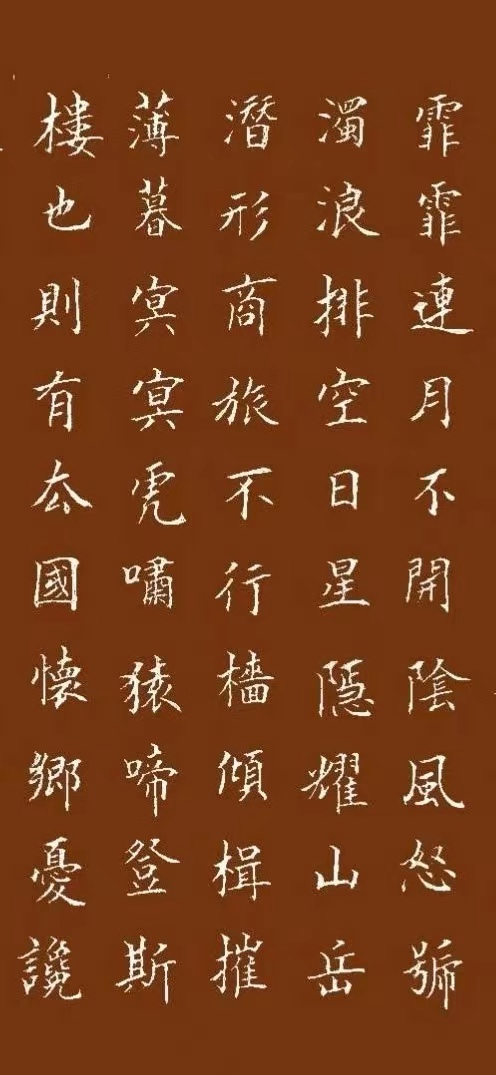 霏霏連月不開陰風怒號
濁浪排空日星隱耀山岳
潛形商旅不行檣傾楫摧
薄暮冥冥虎嘯猿啼登斯
樓也則有去國懷鄉憂讒